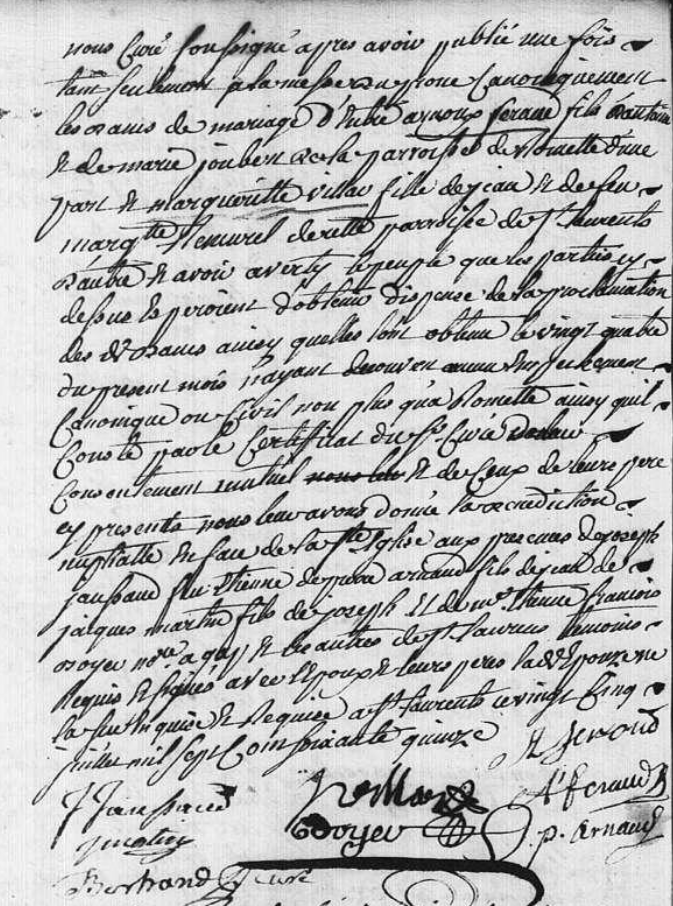 nous Curé soussigné apres avoir publié une fois
tant seulement a la messe du prone Canoniquement
les bans de mariage d'entre arnoux feraud fils d'antoine
et de marie joubert de la parroisse de Romette d'une
part et margueritte villar fille de jean et de feu
margte de cette parroisse de St laurents
d'autre et avoir averty le peuple que les parties cy
dessus esperoient d'obtenir dispense de la proclamation
des dts bans ainsy quelles l'ont obtenu le vingt quatre
du present mois n'ayant decouvert aucun empechement
Canonique ou Civil non plus qu'a Romette ainsy quil
Conste par le Certificat du Sr Curé du lieu
Consentement mutuel et de Ceux de leurs pere
cy presents nous leur avons donné la benediction
nuptialle en face de la Ste Eglise aux presences de joseph
jaussaud feu Etienne de pierre arnaud fils de jean de
jacques martin fils de joseph et de me Etienne françois
boyer nore a gap et de autres de St laurens temoins
Requis et signés avec l'Epoux et leurs peres la dte Epouze ne
la seu Enquise et Requise a St laurents ce vingt Cinq
juillet mil sept Cent soixante quinze
A feraud
J Jaussaud
A feraud
J martin
Boyer
p. Arnaud
Bertrand Curé